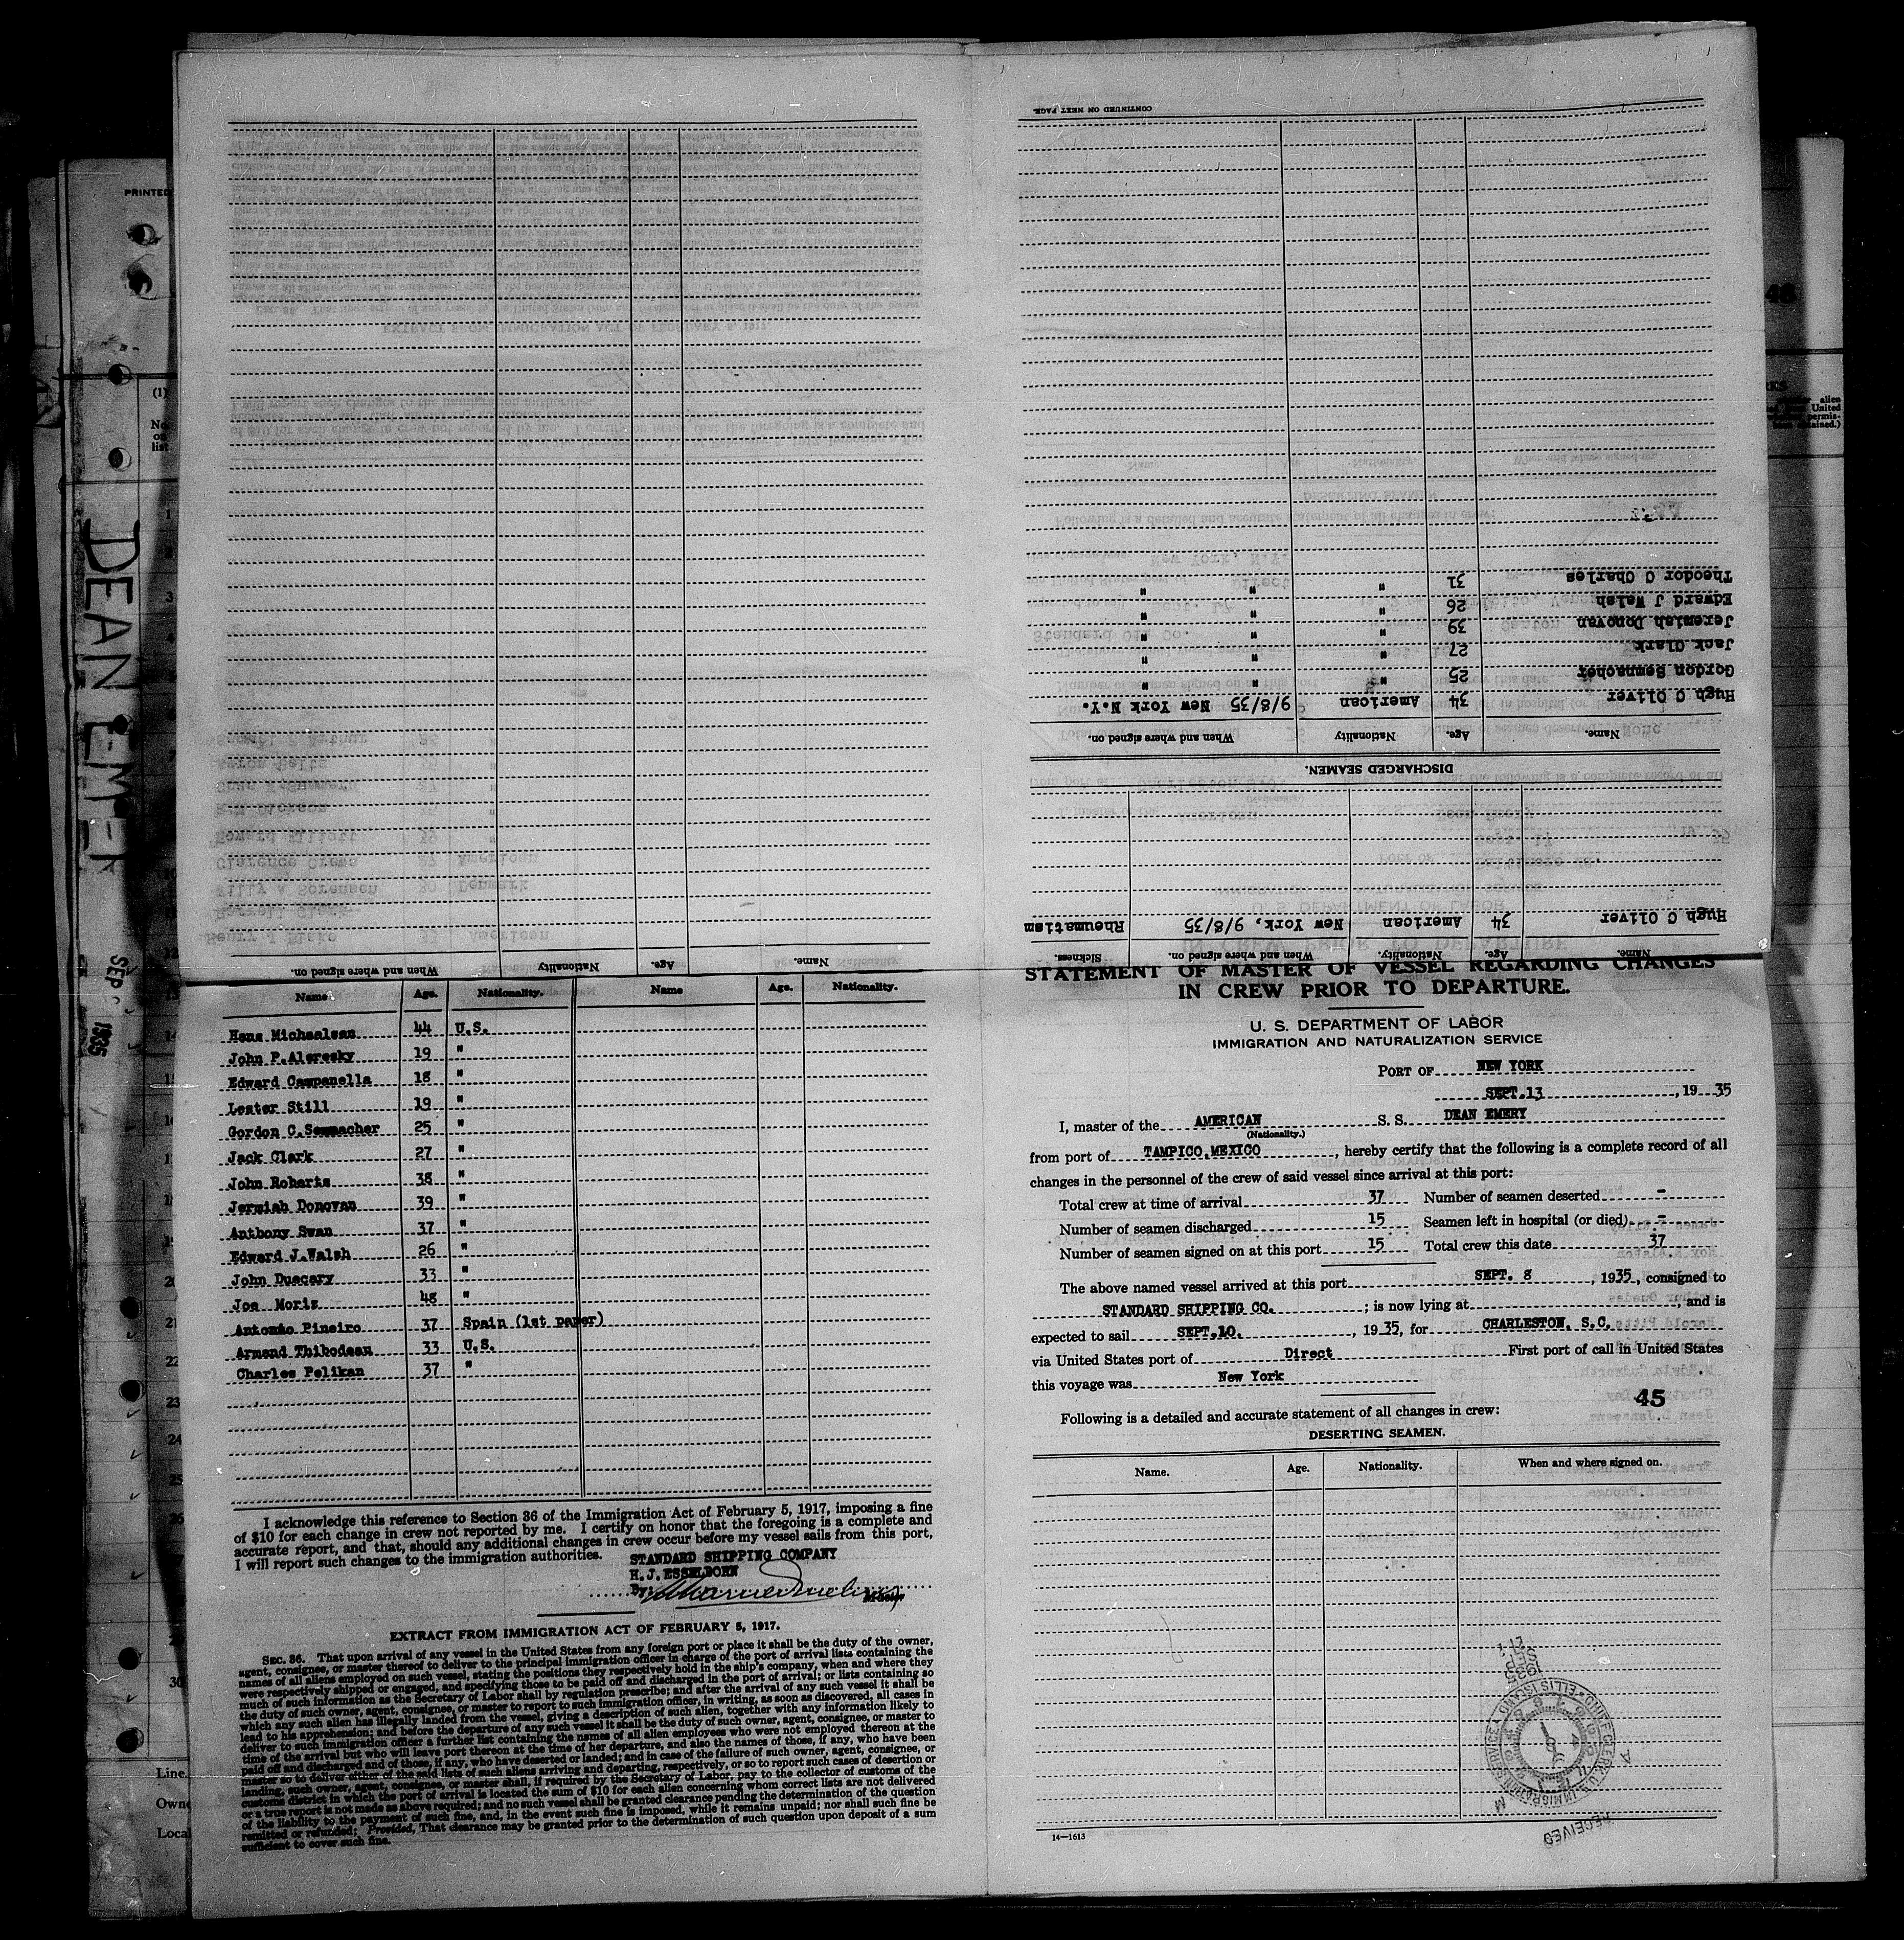 CONTINUED ON NEXT PAGE.
Theodor C Charles 31 " " "
Edward J Walsh 26 " " "
Jeremiah Donovan 39 " " "
Jack Clark 27 " " "
Gordon Semnacher 25 " " "
Hugh C Oliver 34 American 9/8/35 New York N.Y.
Name. Age. Nationality When and where signed on.
DISCHARGED SEAMEN.
Hugh C Oliver 34 American New York, 9/8/35 Rheumatism
Name. Age. Nationality. When and where signed on. Sickness.
Name. Age. Nationality When and where signed on.
PRINTED
(1)
No.
on
list
DEAN EMERY
SEP 1935
48
alien
United
permis-
Name Age. Nationality. Name Age. Nationality.
Hans Michaelsen 44 U.S.
John P.Aleresky 19 "
Edward Campanella 18 "
Lester Still 19 "
Gordon C.Semnacher 25 "
Jack Clark 27 "
John Roberts 38 "
Jermiah Donovan 39 "
Anthony Swan 37 "
Edward J.Walsh 26 "
John Duscary 33 "
Joe Moris 48 "
Antonio Pineiro 37 Spain (1st paper)
Armand Thibodeau 33 U.S.
Charles Pelikan 37 "
I acknowledge this reference to Section 36 of the Immigration Act of February 5, 1917, imposing a fine
of $10 for each change in crew not reported by me. I certify on honor that the foregoing is a complete and
accurate report, and that, should any additional changes in crew occur before my vessel sails from this port,
I will report such changes to the immigration authorities.
STANDARD SHIPPING COMPANY
H.J.ESSELBORN
By:
Master
EXTRACT FROM IMMIGRATION ACT OF FEBRUARY 5, 1917.
SEC. 36. That upon arrival of any vessel in the United States from any foreign port or place it shall be the duty of the owner,
agent, consignee, or master thereof to deliver to the principal immigration officer in charge of the port of arrival lists containing the
names of all aliens employed on such vessel, stating the positions they respectively hold in the ship's company, when and where they
were respectively shipped or engaged, and specifying those to be paid off and discharged in the port of arrival; or lists containing so
much of such information as the Secretary of Labor shall by regulation prescribe; and after the arrival of any such vessel it shall be
the duty of such owner, agent, consignee, or master to report to such immigration officer, in writing, as soon as discovered, all cases in
which any such alien has illegally landed from the vessel, giving a description of such alien, together with any information likely to
lead to his apprehension; and before the departure of any such vessel it shall be the duty of such owner, agent, consignee, or master to
deliver to such immigration officer a further list containing the names of all alien employees who were not employed thereon at the
time of the arrival but who will leave port thereon at the time of her departure, and also the names of those, if any, who have been
paid off and discharged and of those, if any, who have deserted or landed; and in case of the failure of such owner, agent, consignee, or
master so to deliver either of the said lists of such aliens arriving and departing, respectively, or so to report such cases of desertion or
landing, such owner, agent, consignee, or master shall, if required by the Secretary of Labor, pay to the collector of customs of the
customs district in which the port of arrival is located the sum of $10 for each alien concerning whom correct lists are not delivered
or a true report is not made as above required; and no such vessel shall be granted clearance pending the determination of the question
of the liability to the payment of such fine, and, in the event such fine is imposed, while it remains unpaid; nor shall such fine be
remitted or refunded; Provided, That clearance may be granted prior to the determination of such question upon deposit of a sum
sufficient to cover such fine.
STATEMENT OF MASTER OF VESSEL REGARDING CHANGES
IN CREW PRIOR TO DEPARTURE.
U. S. DEPARTMENT OF LABOR
IMMIGRATION AND NATURALIZATION SERVICE
PORT OF NEW YORK
SEPT.13, 1935
I, master of the AMERICAN S. S. DEAN EMERY
(Nationality.)
from port of TAMPICO,MEXICO, hereby certify that the following is a complete record of all
changes in the personnel of the crew of said vessel since arrival at this port:
Total crew at time of arrival 37 Number of seamen deserted -
Number of seamen discharged 15 Seamen left in hospital (or died) -
Number of seamen signed on at this port 15 Total crew this date 37
The above named vessel arrived at this port SEPT. 8, 1935, consigned to
STANDARD SHIPPING CO.; is now lying at, and is
expected to sail SEPT.10., 1935, for CHARLESTON, S.C.
via United States port of Direct First port of call in United States
this voyage was New York
45
Following is a detailed and accurate statement of all changes in crew:
DESERTING SEAMEN.
Name. Age. Nationality. When and where signed on.
14—1613
RECEIVED
Line
Owne
Local